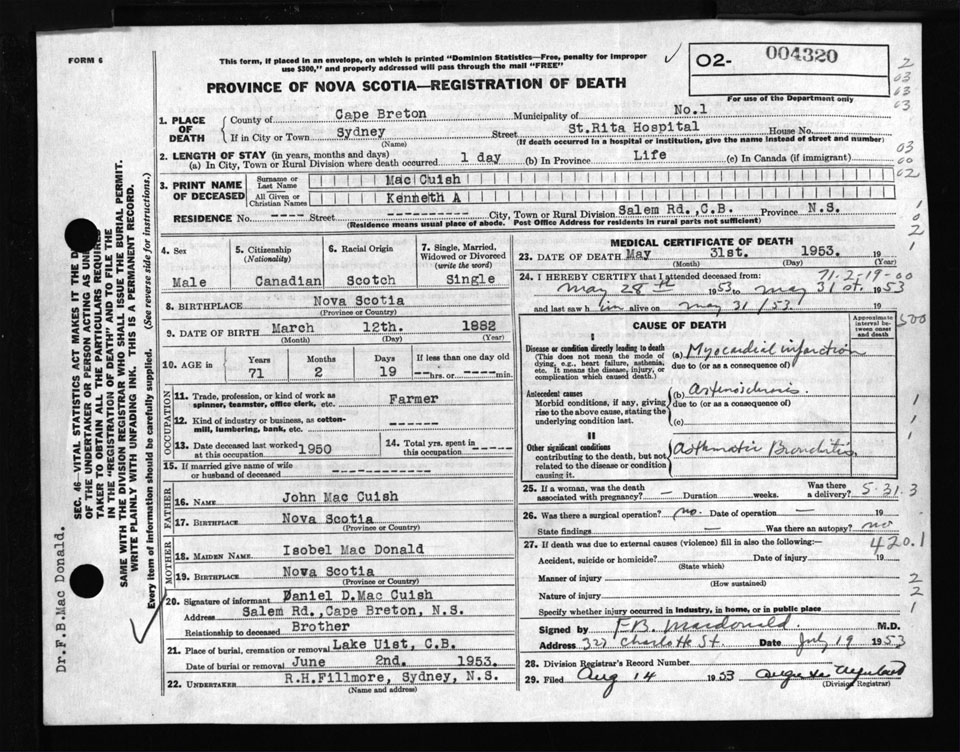 FORM 6
This form, if placed in an envelope, on which is printed "Dominion Statistics—Free, penalty for improper
use $300," and properly addressed will pass through the mail "FREE"
02- 004320
For use of the Department only
PROVINCE OF NOVA SCOTIA—REGISTRATION OF DEATH
1. PLACE OF DEATH
County of Cape Breton Municipality of No.1
If in City or Town Sydney Street St.Rita Hospital House No.
(Name) (If death occurred in a hospital or institution, give the name instead of street and number)
2. LENGTH OF STAY (in years, months and days)
(a) In City, Town or Rural Division where death occurred 1 day (b) In Province Life (c) In Canada (if immigrant)
3. PRINT NAME OF DECEASED
Surname or Last Name Mac Cuish
All Given or Christian Names Kenneth A
RESIDENCE No. ---- Street ---------- City, Town or Rural Division Salem Rd.,C.B. Province N.S.
(Residence means usual place of abode. Post Office Address for residents in rural parts not sufficient)
4. Sex
Male
5. Citizenship
(Nationality)
Canadian
6. Racial Origin
Scotch
7. Single, Married,
Widowed or Divorced
(write the word)
Single
8. BIRTHPLACE Nova Scotia
(Province or Country)
9. DATE OF BIRTH March 12th. 1882
(Month) (Day) (Year)
10. AGE in
Years Months Days If less than one day old
71 2 19 ---- hrs. or ---- min.
OCCUPATION
11. Trade, profession, or kind of work as
spinner, teamster, office clerk, etc. Farmer
12. Kind of industry or business, as cotton-
mill, lumbering, bank, etc. -------
13. Date deceased last worked
at this occupation 1950
14. Total yrs. spent in
this occupation -----
15. If married give name of wife
or husband of deceased ------------
FATHER
16. NAME John Mac Cuish
17. BIRTHPLACE Nova Scotia
(Province or Country)
MOTHER
18. MAIDEN NAME Isobel Mac Donald
19. BIRTHPLACE Nova Scotia
(Province or Country)
20. Signature of informant Daniel D.Mac Cuish
Address Salem Rd.,Cape Breton, N.S.
Relationship to deceased Brother
21. Place of burial, cremation or removal Lake Uist, C.B.
Date of burial or removal June 2nd. 1953.
22. UNDERTAKER R.H.Fillmore, Sydney, N.S.
(Name and address)
MEDICAL CERTIFICATE OF DEATH
23. DATE OF DEATH May 31st. 1953. 19
(Month) (Day) (Year)
24. I HEREBY CERTIFY that I attended deceased from: 71-2-19-00
May 28th 1953 to May 31st. 1953
and last saw him alive on May 31/53. 19
CAUSE OF DEATH
Approximate
interval between
onset
and death
I
Disease or condition directly leading to death
(This does not mean the mode of
dying, e.g., heart failure, asthenia,
etc. It means the disease, injury, or
complication which caused death.)
(a) Myocardial infarction
due to (or as a consequence of)
Antecedent causes
Morbid conditions, if any, giving
rise to the above cause, stating the
underlying condition last.
(b)
due to (or as a consequence of)
(c)
II
Other significant conditions
contributing to the death, but not
related to the disease or condition
causing it.
Asthmatic Bronchitis
25. If a woman, was the death
associated with pregnancy? — Duration weeks. Was there
a delivery? 5.31.3
26. Was there a surgical operation? no. Date of operation — 19
State findings — Was there an autopsy? no
27. If death was due to external causes (violence) fill in also the following:— 420.1
Accident, suicide or homicide? Date of injury 19
(State which)
Manner of injury
(How sustained)
Nature of injury
Specify whether injury occurred in industry, in home, or in public place
Signed by F.B. Macdonald. M.D.
Address 321 Charlotte St. Date July 19 1953
28. Division Registrar's Record Number
29. Filed Aug 14 1953
(Division Registrar)
SEC. 46—VITAL STATISTICS ACT MAKES IT THE
OF THE UNDERTAKER OR PERSON ACTING AS
TAKER TO OBTAIN ALL THE PARTICULARS REQUIRED
IN THE "REGISTRATION OF DEATH" AND TO FILE THE
SAME WITH THE DIVISION REGISTRAR WHO SHALL ISSUE THE BURIAL PERMIT.
WRITE PLAINLY WITH UNFADING INK. THIS IS A PERMANENT RECORD.
Every item of information should be carefully supplied. (See reverse side for instructions.)
Dr.F.B.Mac Donald.